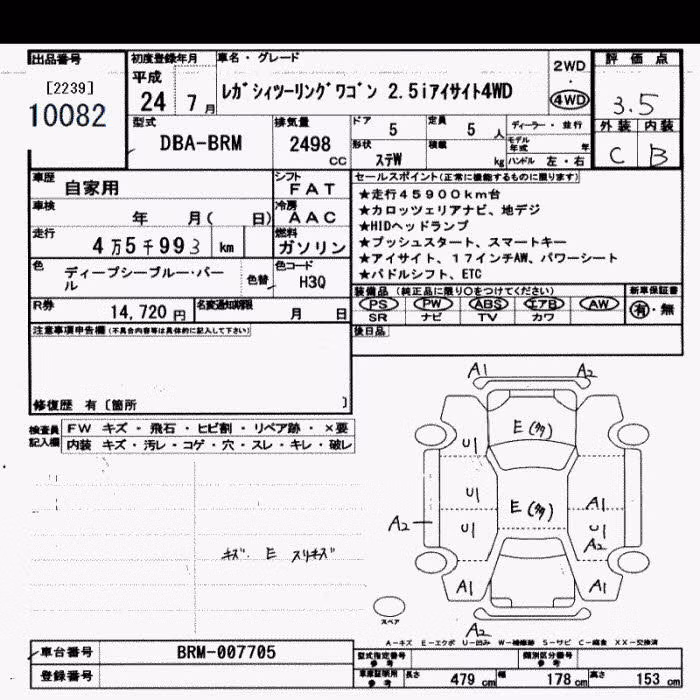 出品番号
[2239]
10082
初度登録年月
平成
24 7月
車名・グレード
レガシィツーリングワゴン 2.5iアイサイト4WD
2WD
・
4WD
評価点
3.5
外装 内装
C B
型式
DBA-BRM
排気量
2498
CC
ドア 5
定員 5人
ディーラー・並行
形状 ステW
積載 kg
モデル年式 年
ハンドル 左・右
車歴 自家用
シフト FAT
車検 年 月( 日)
冷房 AAC
走行 4万5千993 km
燃料 ガソリン
色 ディープシーブルー・パール
色替
色コード H3Q
R券 14,720円
名変通知期限 月 日
セールスポイント(正常に機能するものに限ります)
★走行45900km台
★カロッツェリアナビ、地デジ
★HIDヘッドランプ
★プッシュスタート、スマートキー
★アイサイト、17インチAW、パワーシート
★パドルシフト、ETC
装備品(純正品に限り○をつけてください)
新車保証書
PS PW ABS エアB AW
SR ナビ TV カワ
有・無
後日品
注意事項申告欄(不具合内容等は具体的に記入して下さい)
修復歴 有〔箇所 〕
検査員記入欄
FW キズ・飛石・ヒビ割・リペア跡・×要
内装 キズ・汚レ・コゲ・穴・スレ・キレ・破レ
キズ. E スリキズ
A1 A2
E(多)
U1
U1 E(多) A1
A2 U1 U1
A2
A1 A1
A2
スペア
A-キズ E-エクボ U-凹み W-補修跡 S-サビ C-腐食 XX-交換済
車台番号 BRM-007705
登録番号
型式指定番号 参考
類別区分番号 参考
車庫証明用 参考
長さ 479cm 幅 178cm 高さ 153cm